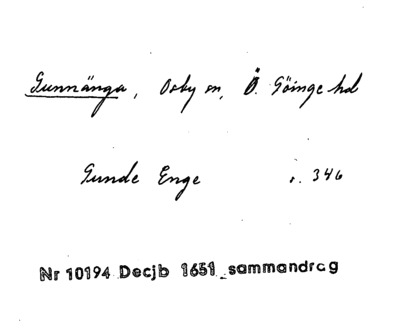 Gunnänga, Osby sn, Ö. Göinge hd
Gunde Enge s. 346
Nr 10194 Decjb 1651 sammandrag